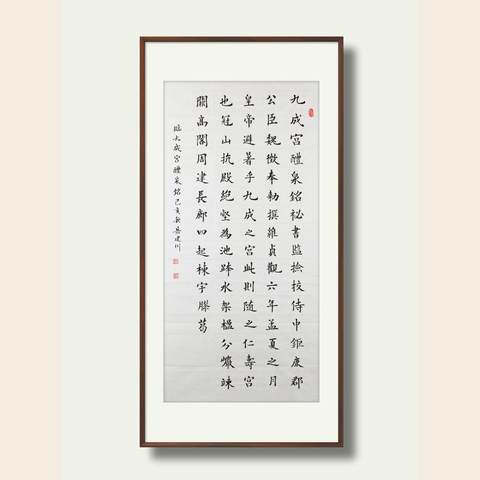 九成宮醴泉銘祕書監撿挍侍中鉅鹿郡
公臣魏徵奉勅撰維貞觀六年孟夏之月
皇帝避暑乎九成之宮此則隨之仁壽宮
也冠山抗殿絕壑為池跨水架楹分巖竦
闕高閣周建長廊四起棟宇膠葛
臨九成宮醴泉銘己亥秋岳建川